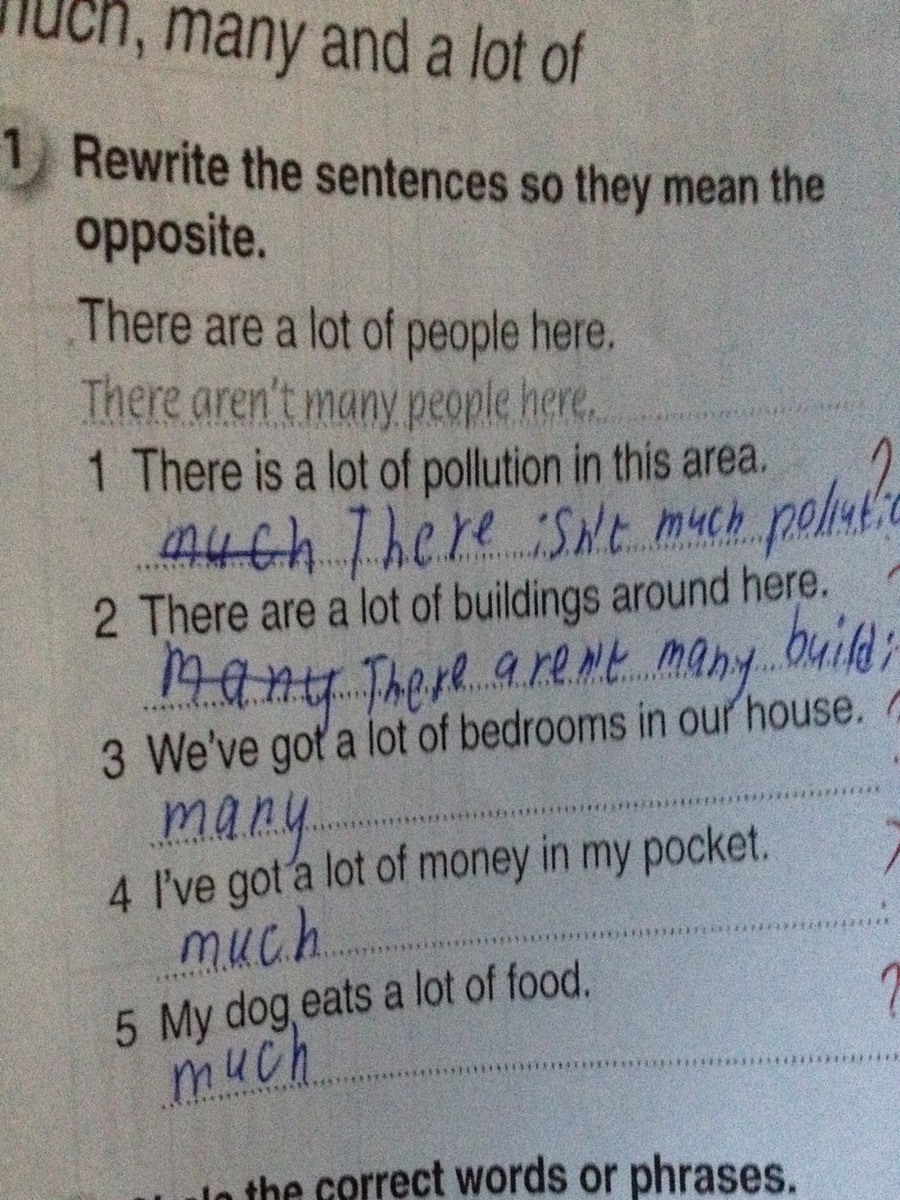 much, many and a lot of
1 Rewrite the sentences so they mean the
opposite.
There are a lot of people here.
There aren't many people here.
1 There is a lot of pollution in this area. ?
much There isn't much pollutio
2 There are a lot of buildings around here.
many There aren't many buildi
3 We've got a lot of bedrooms in our house. ?
many
4 I've got a lot of money in my pocket.
much
5 My dog eats a lot of food. ?
much
the correct words or phrases.